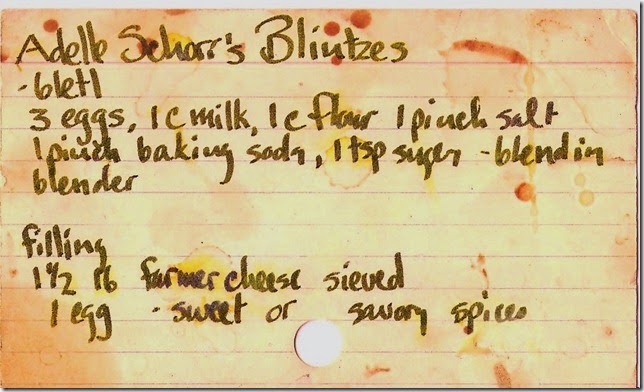 Adelle Schorr's Blintzes
-bletl
3 eggs, 1 c milk, 1 c flour 1 pinch salt
1 pinch baking soda, 1 tsp sugar - blend in
blender
filling
1 1/2 lb farmer cheese sieved
1 egg - sweet or savory spices